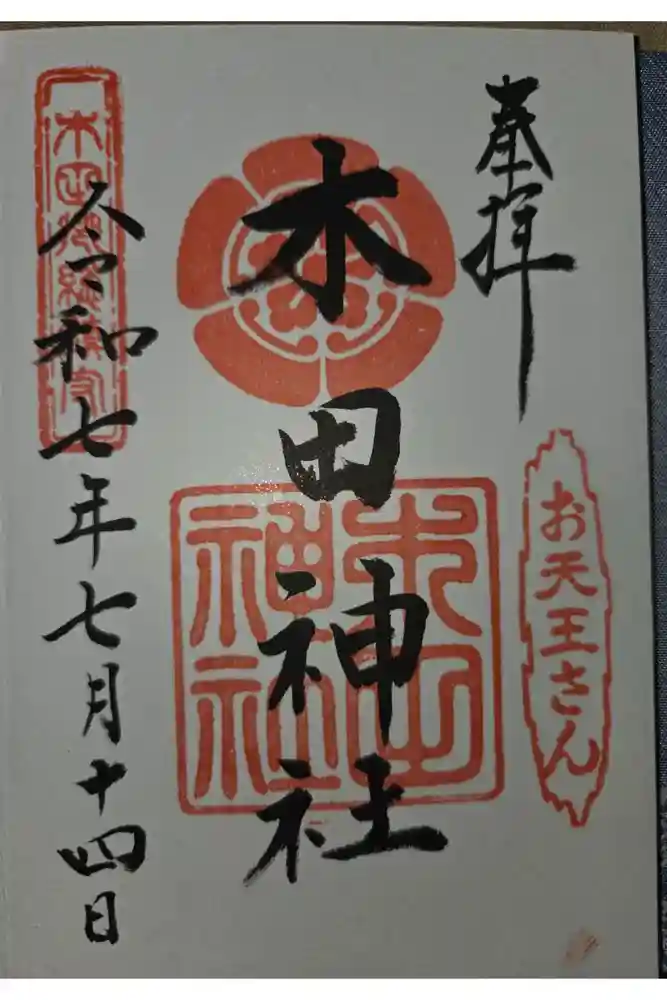 奉拝
お天王さん
木田神社
木田神社
令和七年七月十四日
木田郷総鎮守